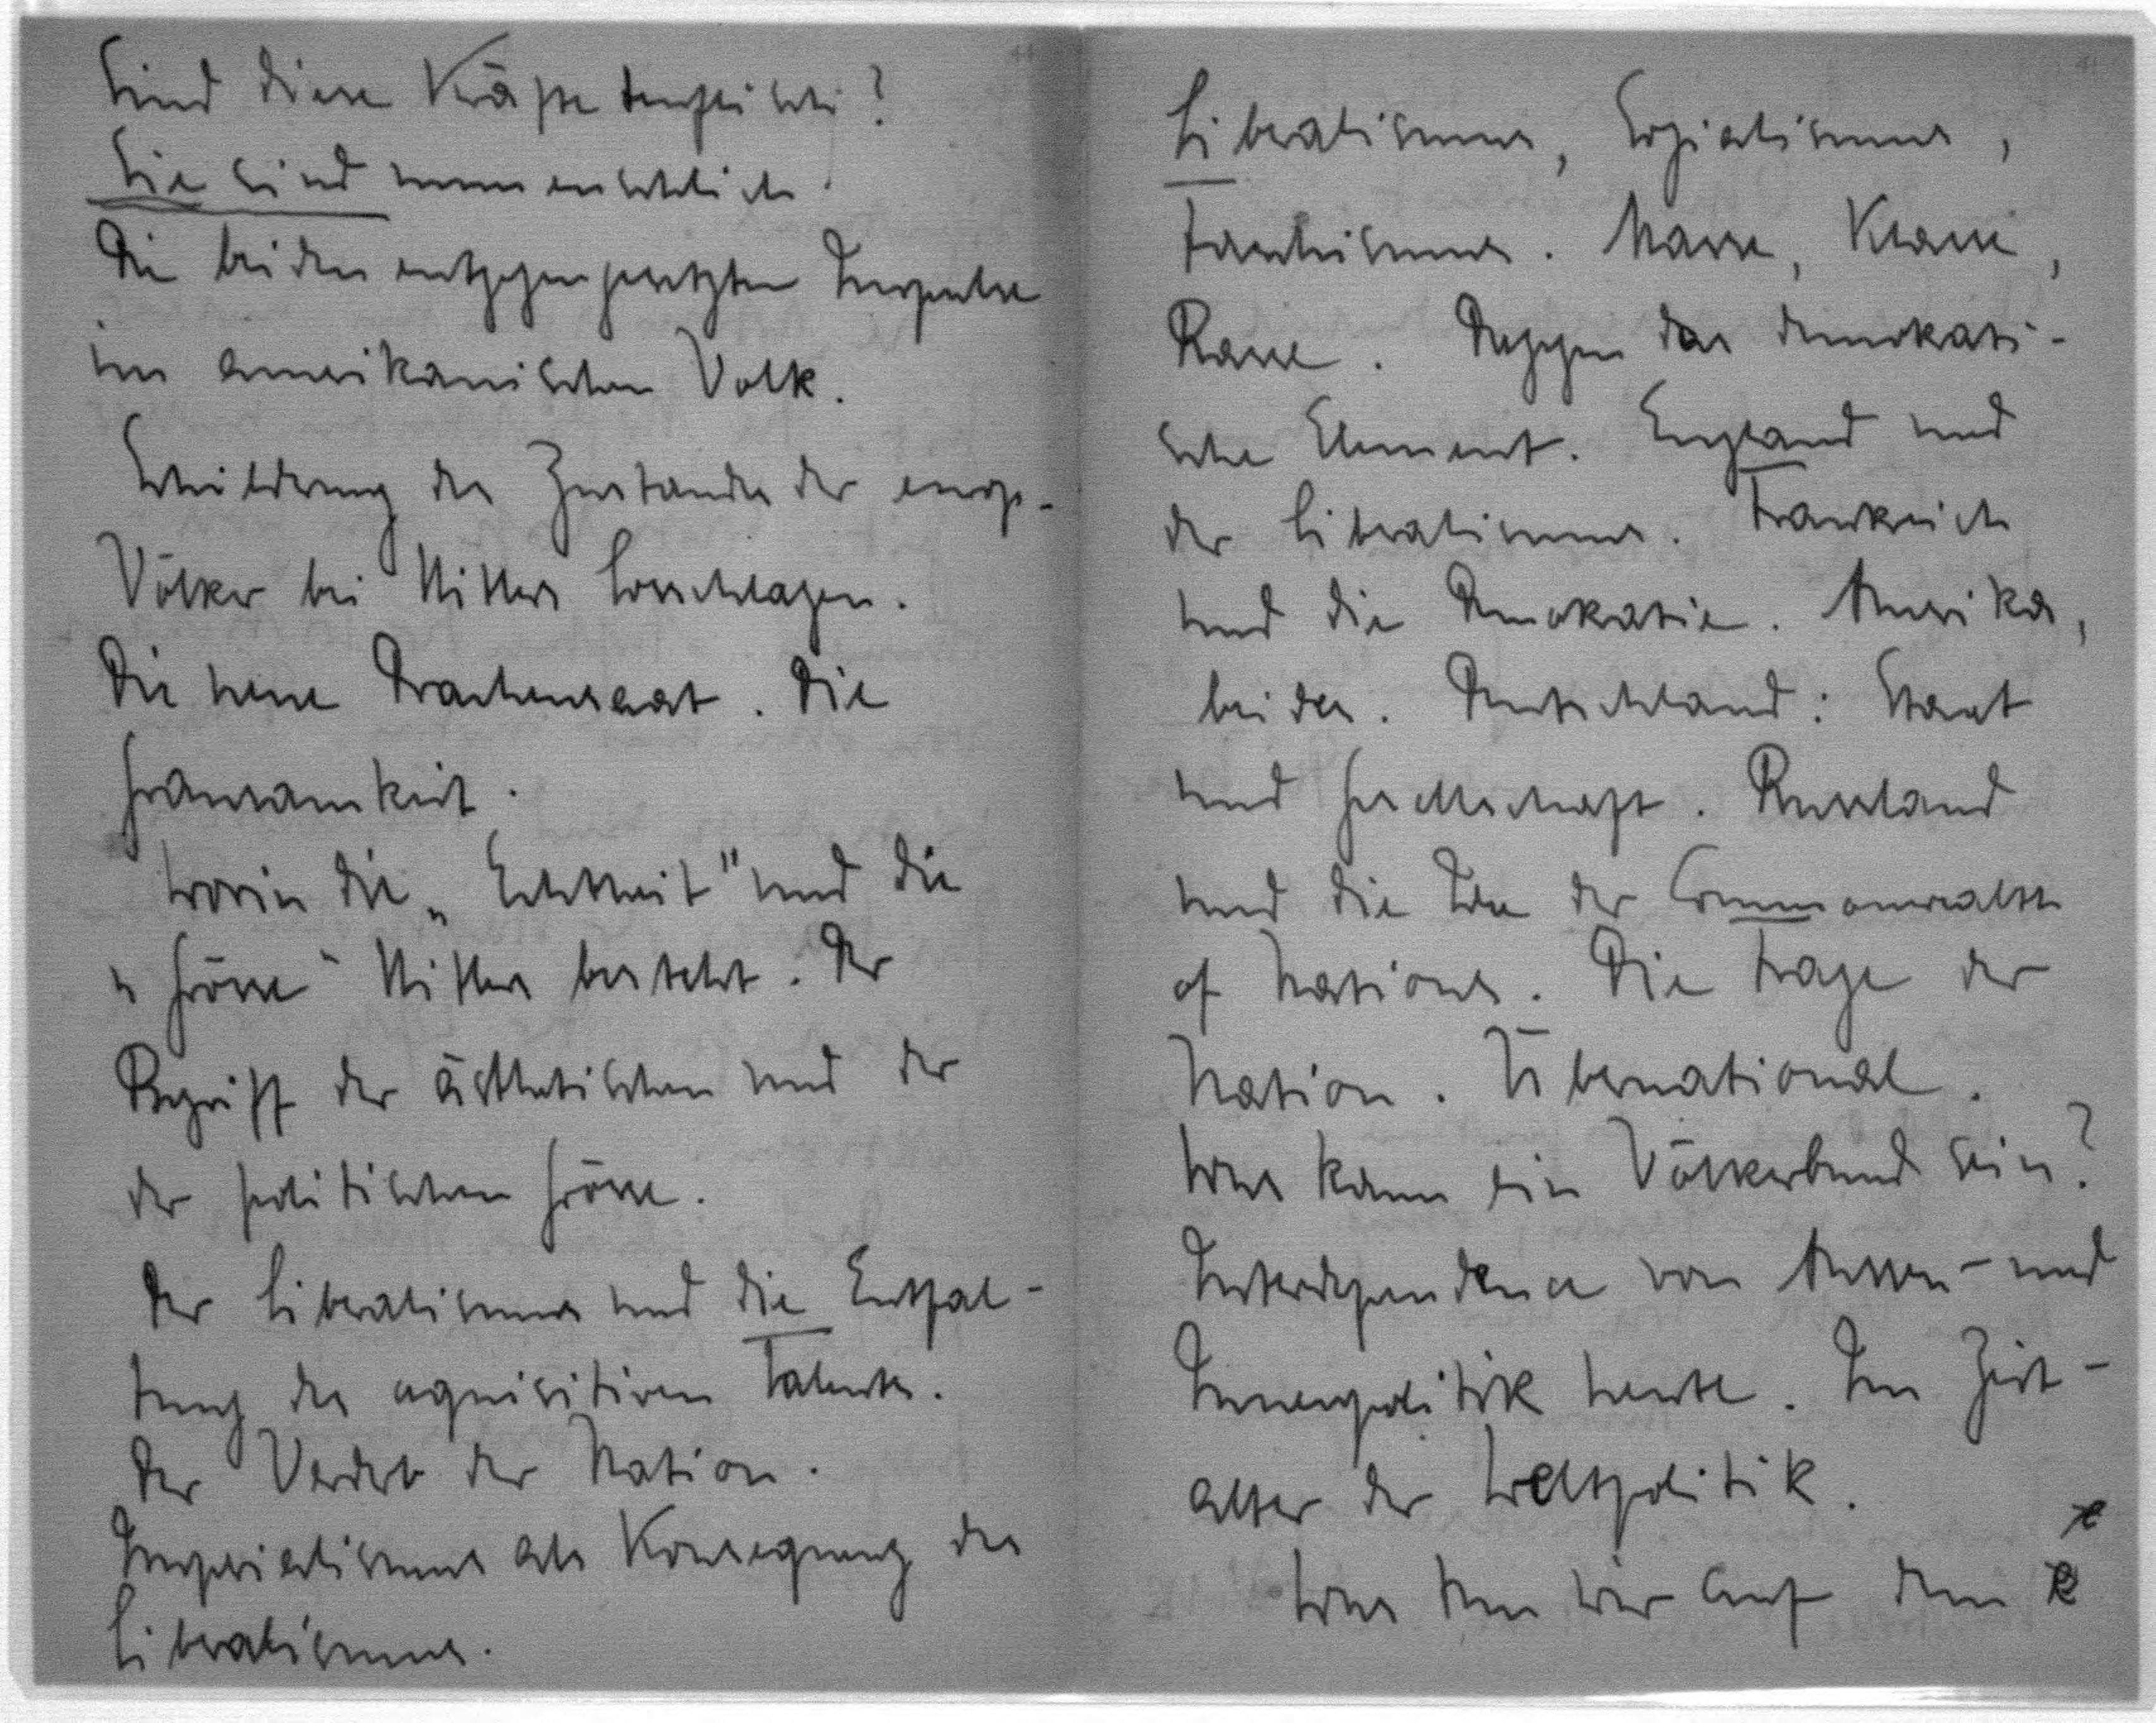 Sind diese Kräfte teuflisch?
Sie sind unmenschlich.
Die beiden entgegengesetzten Impulse
im amerikanischen Volk.
Schilderung des Zustandes der europ.
Völker bei Hitlers Losschlagen.
Die neue Drachensaat. Die
Grausamkeit.
Worin die „Echtheit" und die
„Grösse" Hitlers besteht. Der
Begriff der ästhetischen und der
der politischen Grösse.
Der Liberalismus und die Entfal-
tung des aquisitiven Talents.
Der Verderb der Nation.
Imperialismus als Konsequenz des
Liberalismus.
Liberalismus, Sozialismus,
Faschismus. Masse, Klasse,
Rasse. Dagegen das demokrati-
sche Element. England und
der Liberalismus. Frankreich
und die Demokratie. Amerika,
beides. Deutschland: Staat
und Gesellschaft. Russland
und die Idee der Commonwealth
of Nations. Die Frage der
Nation. Übernational.
Was kann ein Völkerbund sein?
Interdependence von Aussen- und
Innenpolitik heute. Im Zeit-
alter der Weltpolitik.
Was tun wir auf dem